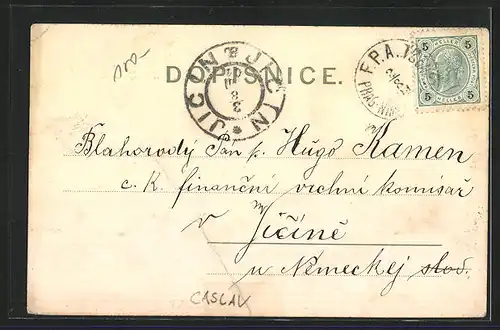 100-
DOPISNICE.
JIČÍN * JICIN
3
8
F.P.A.
5 HELLER 5
5 HELLER 5
Blahorody Pán p. Hugo Kamen
c. K. finanční vrchní komisař
v Jičíně
u Německej
CASLAV